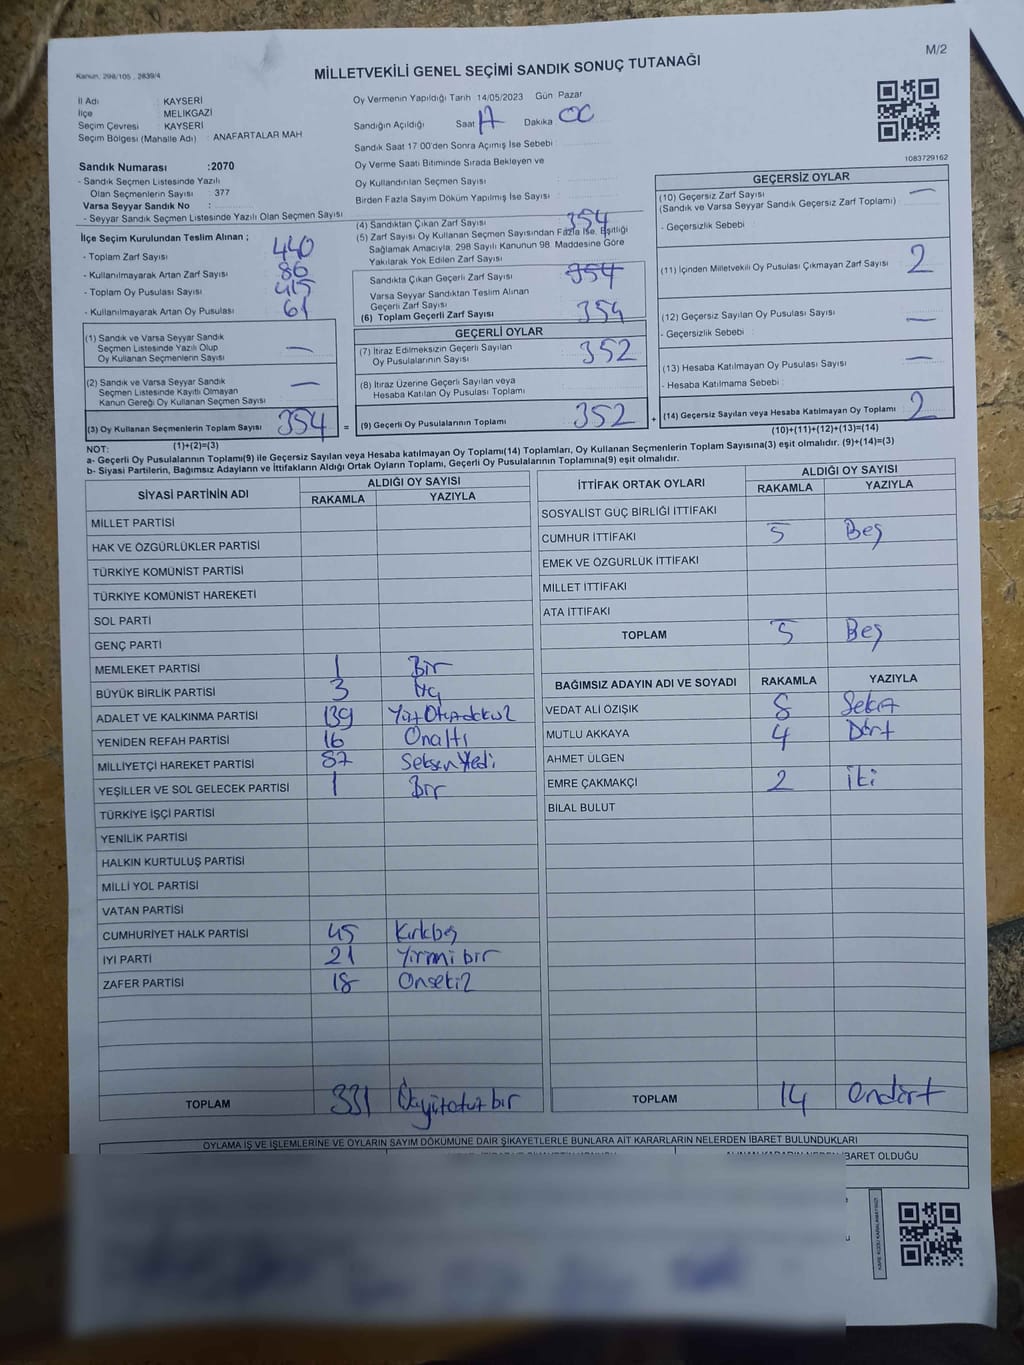 M/2
Kanun, 298/105, 2839/4
MİLLETVEKİLİ GENEL SEÇİMİ SANDIK SONUÇ TUTANAĞI
İl Adı : KAYSERİ
İlçe : MELİKGAZİ
Seçim Çevresi : KAYSERİ
Seçim Bölgesi (Mahalle Adı) : ANAFARTALAR MAH
Sandık Numarası :2070
- Sandık Seçmen Listesinde Yazılı
Olan Seçmenlerin Sayısı : 377
Varsa Seyyar Sandık No :
- Seyyar Sandık Seçmen Listesinde Yazılı Olan Seçmen Sayısı
İlçe Seçim Kurulundan Teslim Alınan ;
- Toplam Zarf Sayısı 440
- Kullanılmayarak Artan Zarf Sayısı 86
- Toplam Oy Pusulası Sayısı 415
- Kullanılmayarak Artan Oy Pusulası 61
(1) Sandık ve Varsa Seyyar Sandık
Seçmen Listesinde Yazılı Olup
Oy Kullanan Seçmenlerin Sayısı —
(2) Sandık ve Varsa Seyyar Sandık
Seçmen Listesinde Kayıtlı Olmayan
Kanun Gereği Oy Kullanan Seçmen Sayısı —
(3) Oy Kullanan Seçmenlerin Toplam Sayısı 354 =
(1)+(2)=(3)
Oy Vermenin Yapıldığı Tarih 14/05/2023 Gün Pazar
Sandığın Açıldığı Saat Dakika
Sandık Saat 17:00'den Sonra Açımış İse Sebebi
Oy Verme Saati Bitiminde Sırada Bekleyen ve
Oy Kullandırılan Seçmen Sayısı :
Birden Fazla Sayım Döküm Yapılmış İse Sayısı
(4) Sandıktan Çıkan Zarf Sayısı 354
(5) Zarf Sayısı Oy Kullanan Seçmen Sayısından Fazla İse, Eşitliği
Sağlamak Amacıyla, 298 Sayılı Kanunun 98. Maddesine Göre
Yakılarak Yok Edilen Zarf Sayısı
Sandıkta Çıkan Geçerli Zarf Sayısı 354
Varsa Seyyar Sandıktan Teslim Alınan
Geçerli Zarf Sayısı
(6) Toplam Geçerli Zarf Sayısı 354
GEÇERLİ OYLAR
(7) İtiraz Edilmeksizin Geçerli Sayılan
Oy Pusulalarının Sayısı 352
(8) İtiraz Üzerine Geçerli Sayılan veya
Hesaba Katılan Oy Pusulası Toplamı
(9) Geçerli Oy Pusulalarının Toplamı 352 +
1083729162
GEÇERSİZ OYLAR
(10) Geçersiz Zarf Sayısı —
(Sandık ve Varsa Seyyar Sandık Geçersiz Zarf Toplamı)
- Geçersizlik Sebebi
(11) İçinden Milletvekili Oy Pusulası Çıkmayan Zarf Sayısı 2
(12) Geçersiz Sayılan Oy Pusulası Sayısı —
- Geçersizlik Sebebi :
(13) Hesaba Katılmayan Oy Pusulası Sayısı —
- Hesaba Katılmama Sebebi :
(14) Geçersiz Sayılan veya Hesaba Katılmayan Oy Toplamı 2
(10)+(11)+(12)+(13)=(14)
NOT:
a- Geçerli Oy Pusulalarının Toplamı(9) ile Geçersiz Sayılan veya Hesaba katılmayan Oy Toplamı(14) Toplamları, Oy Kullanan Seçmenlerin Toplam Sayısına(3) eşit olmalıdır. (9)+(14)=(3)
b- Siyasi Partilerin, Bağımsız Adayların ve İttifakların Aldığı Ortak Oyların Toplamı, Geçerli Oy Pusulalarının Toplamına(9) eşit olmalıdır.
SİYASİ PARTİNİN ADI ALDIĞI OY SAYISI
RAKAMLA YAZIYLA
MİLLET PARTİSİ
HAK VE ÖZGÜRLÜKLER PARTİSİ
TÜRKİYE KOMÜNİST PARTİSİ
TÜRKİYE KOMÜNİST HAREKETİ
SOL PARTİ
GENÇ PARTİ
MEMLEKET PARTİSİ 1 Bir
BÜYÜK BİRLİK PARTİSİ 3 Üç
ADALET VE KALKINMA PARTİSİ 139 YüzOtuzdokuz
YENİDEN REFAH PARTİSİ 16 Onaltı
MİLLİYETÇİ HAREKET PARTİSİ 87 SeksenYedi
YEŞİLLER VE SOL GELECEK PARTİSİ 1 Bir
TÜRKİYE İŞÇİ PARTİSİ
YENİLİK PARTİSİ
HALKIN KURTULUŞ PARTİSİ
MİLLİ YOL PARTİSİ
VATAN PARTİSİ
CUMHURİYET HALK PARTİSİ 45 Kırkbeş
İYİ PARTİ 21 Yirmi bir
ZAFER PARTİSİ 18 Onsekiz
TOPLAM 331 Üçyüzotuz bir
İTTİFAK ORTAK OYLARI ALDIĞI OY SAYISI
RAKAMLA YAZIYLA
SOSYALİST GÜÇ BİRLİĞİ İTTİFAKI
CUMHUR İTTİFAKI 5 Beş
EMEK VE ÖZGÜRLÜK İTTİFAKI
MİLLET İTTİFAKI
ATA İTTİFAKI
TOPLAM 5 Beş
BAĞIMSIZ ADAYIN ADI VE SOYADI RAKAMLA YAZIYLA
VEDAT ALİ ÖZIŞIK 8 Sekiz
MUTLU AKKAYA 4 Dört
AHMET ÜLGEN
EMRE ÇAKMAKÇI 2 İki
BİLAL BULUT
TOPLAM 14 Ondört
OYLAMA İŞ VE İŞLEMLERİNE VE OYLARIN SAYIM DÖKÜMÜNE DAİR ŞİKAYETLERLE BUNLARA AİT KARARLARIN NELERDEN İBARET BULUNDUKLARI
İBARET OLDUĞU